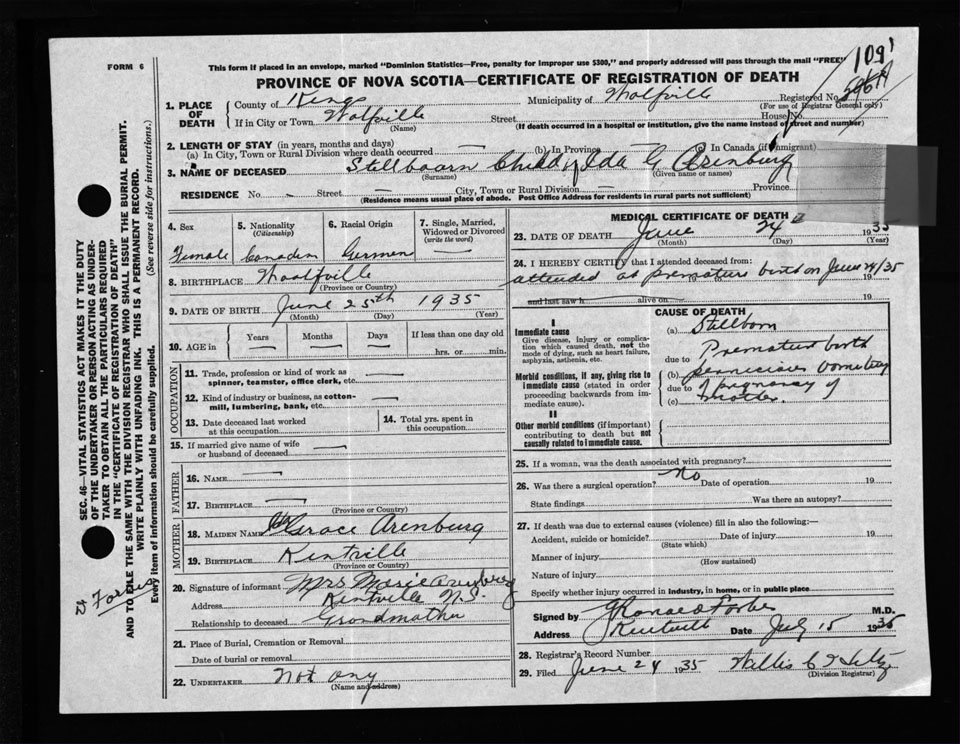 FORM 6
This form if placed in an envelope, marked "Dominion Statistics—Free, penalty for improper use $300," and properly addressed will pass through the mail "FREE"
109
PROVINCE OF NOVA SCOTIA—CERTIFICATE OF REGISTRATION OF DEATH
1. PLACE OF DEATH
County of Kings Municipality of Wolfville Registered No.
(For use of Registrar General only)
If in City or Town Wolfville Street House No.
(Name) (If death occurred in a hospital or institution, give the name instead of street and number)
2. LENGTH OF STAY (in years, months and days)
(a) In City, Town or Rural Division where death occurred (b) In Province (c) In Canada (if immigrant)
3. NAME OF DECEASED Stillboarn Child of Ida G Arenburg
(Surname) (Given name or names)
RESIDENCE No. Street City, Town or Rural Division Province
(Residence means usual place of abode. Post Office Address for residents in rural parts not sufficient)
4. Sex 5. Nationality (Citizenship) 6. Racial Origin 7. Single, Married, Widowed or Divorced (write the word)
Female Canadien German
8. BIRTHPLACE Woolfville
(Province or Country)
9. DATE OF BIRTH June 25th 1935
(Month) (Day) (Year)
10. AGE in Years Months Days If less than one day old
hrs. or min.
OCCUPATION
11. Trade, profession or kind of work as spinner, teamster, office clerk, etc.
12. Kind of industry or business, as cotton-mill, lumbering, bank, etc.
13. Date deceased last worked at this occupation
14. Total yrs. spent in this occupation
15. If married give name of wife or husband of deceased
FATHER
16. NAME
17. BIRTHPLACE
(Province or Country)
MOTHER
18. MAIDEN NAME Grace Arenburg
19. BIRTHPLACE Kentville
(Province or Country)
20. Signature of informant Mrs Marie Arenburg
Address Kentville N.S.
Relationship to deceased Grandmother
21. Place of Burial, Cremation or Removal
Date of burial or removal
22. UNDERTAKER Not any
(Name and address)
MEDICAL CERTIFICATE OF DEATH
23. DATE OF DEATH June 24 1935
(Month) (Day) (Year)
24. I HEREBY CERTIFY that I attended deceased from:
attended at premature birth on June 24/35
to 19
and last saw h alive on 19
CAUSE OF DEATH
I
Immediate cause
Give disease, injury or complication which caused death, not the mode of dying, such as heart failure, asphyxia, asthenia, etc.
(a) Stillborn
due to Premature birth
Morbid conditions, if any, giving rise to immediate cause (stated in order proceeding backwards from immediate cause).
(b) pernicious vomiting
due to of pregnancy of
(c) mother.
II
Other morbid conditions (if important) contributing to death but not causally related to immediate cause.
25. If a woman, was the death associated with pregnancy?
26. Was there a surgical operation? No Date of operation 19
State findings Was there an autopsy?
27. If death was due to external causes (violence) fill in also the following:—
Accident, suicide or homicide? Date of injury 19
(State which)
Manner of injury
(How sustained)
Nature of injury
Specify whether injury occurred in industry, in home, or in public place
Signed by J Ronald Forbes M.D.
Address Kentville Date July 15 1935
28. Registrar's Record Number
29. Filed June 24 1935 Willis C
(Division Registrar)
SEC. 46—VITAL STATISTICS ACT MAKES IT THE DUTY
OF THE UNDERTAKER OR PERSON ACTING AS UNDER-
TAKER TO OBTAIN ALL THE PARTICULARS REQUIRED
IN THE "CERTIFICATE OF REGISTRATION OF DEATH"
AND TO FILE THE SAME WITH THE DIVISION REGISTRAR WHO SHALL ISSUE THE BURIAL PERMIT.
WRITE PLAINLY WITH UNFADING INK. THIS IS A PERMANENT RECORD.
Every item of information should be carefully supplied. (See reverse side for instructions.)
42
Forbes